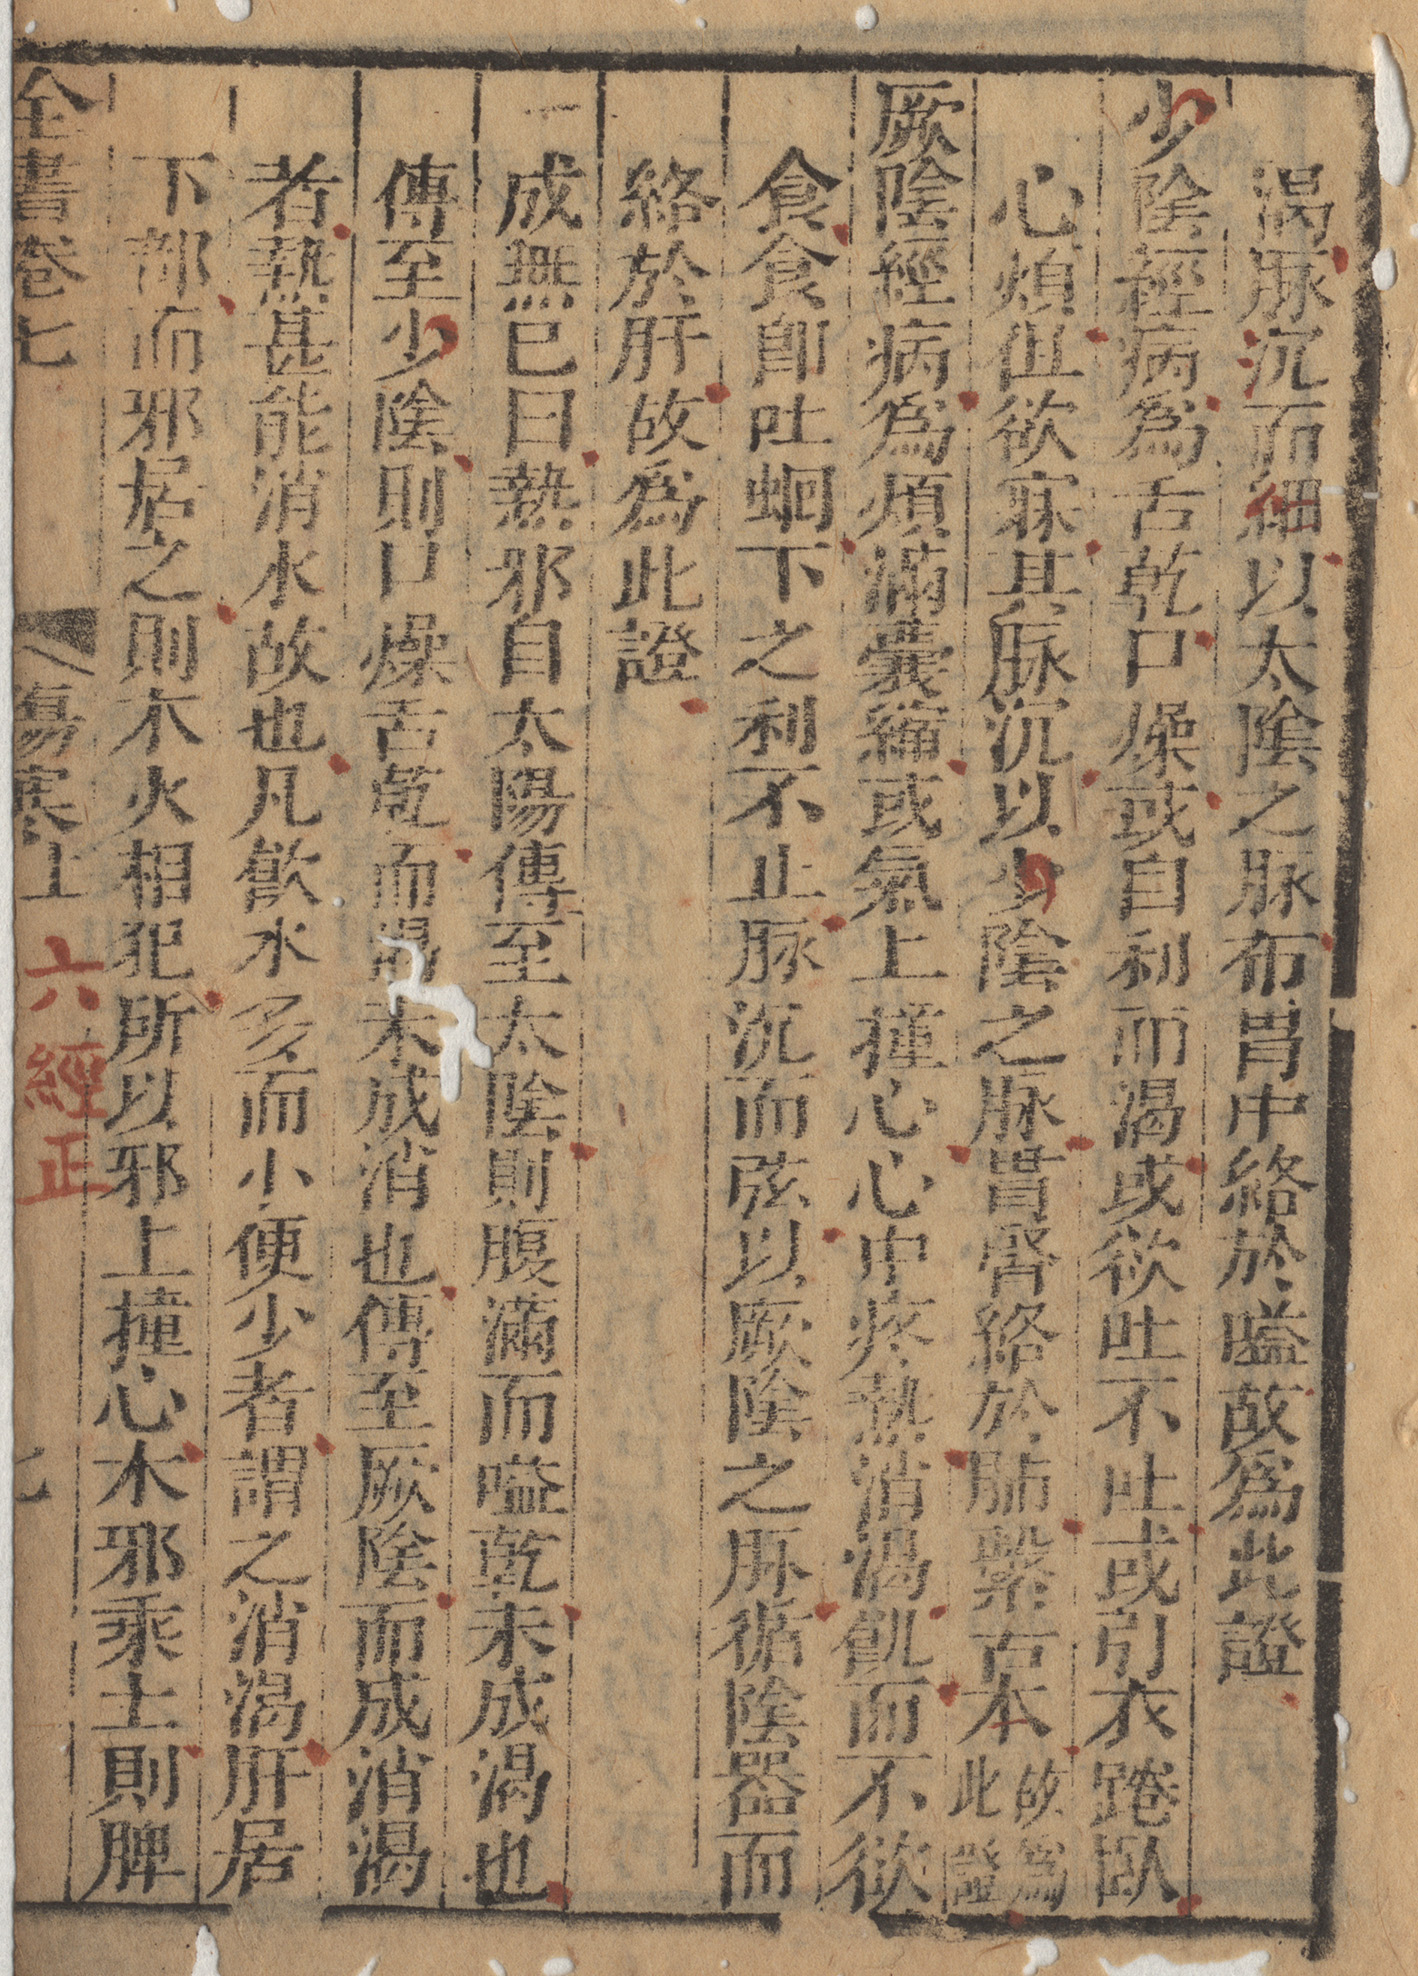 渴脉沉而細以太陰之脉布胃中絡於嗌故爲此證
少陰經病爲舌乾口燥或自利而渴或欲吐不吐或引衣踡臥
心煩但欲寐其脉沉以少陰之脉貫腎絡於肺繫舌本故爲此證
厥陰經病爲煩滿囊縮或氣上撞心心中疼熱消渴飢而不欲
食食即吐蛔下之利不止脉沉而弦以厥陰之脉循陰器而
絡於肝故爲此證
一成無已曰熱邪自太陽傳至太陰則腹滿而嗌乾未成渴也
傳至少陰則口燥舌乾而渴未成消也傳至厥陰而成消渴
者熱甚能消水故也凡飲水多而小便少者謂之消渴肝居
下部而邪居之則木火相犯所以邪上撞心木邪乘土則脾
全書卷七 傷寒上 六經正 七